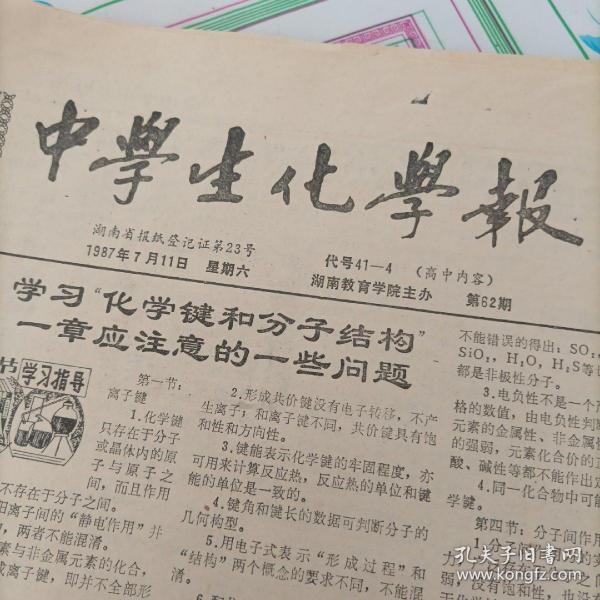 中學生化學報
湖南省报纸登记证第23号
1987年7月11日 星期六
代号41—4 （高中内容）
湖南教育学院主办 第62期
学习“化学键和分子结构”
一章应注意的一些问题
学习指导
第一节：
离子键
1.化学键
只存在于分子
或晶体内的原
子与原子之
间，而且作用
不存在于分子之间。
阳离子间的“静电作用”并
，两者不能混淆。
素与非金属元素的化合，
成离子键，即并不全部形
2.形成共价键没有电子转移，不产
生离子；和离子键不同，共价键具有饱
和性和方向性。
3.键能表示化学键的牢固程度，亦
可用来计算反应热，反应热的单位和键
能的单位是一致的。
4.键角和键长的数据可判断分子的
几何构型。
5.用电子式表示“形成过程”和
“结构”两个概念的要求不同，不能混
淆。
不能错误的得出：SO₂，
SiO₂，H₂O，H₂S等
都是非极性分子。
3.电负性不是一个
格的数值，由电负性判断
元素的金属性、非金属性
的强弱，元素化合价的正
酸、碱性等都不能作出定
4.同一化合物中可能
学键。
第四节：分子间作用
1.分子间
孔夫子旧书网
www.kongfz.com